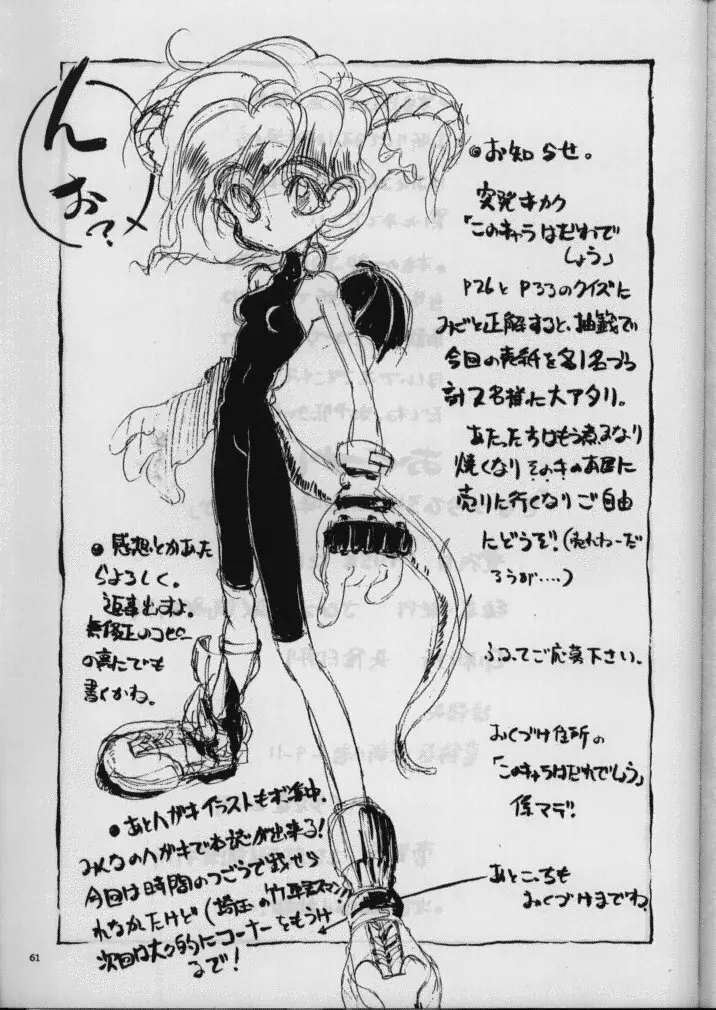 ん
お?
●お知らせ。
突発キカク
「このキャラはだれで
しょう」
P26とP33のクイズに
みごと正解すると、抽籤で
今回の表紙を各1名づつ
計2名様に大アタリ。
あたった方はもう煮るなり
焼くなりそのキのお店に
売りに行くなりご自由
にどうぞ!(売れねーだ
ろうが‥‥)
ふるってご応募下さい。
おくづけ住所の
「このキャラはだれでしょう」
係マデ!
あとこっちも
おくづけまでね
●感想とかあた
らよろしく。
返事出すよ。
無修正のコピー
の裏にでも
書くかね。
●あとハガキイラストもボ集中。
みんなのハガキで本誌が出来る!
今回は時間のつごうで載せら
れなかたけど(埼玉の竹
次回は大々的にコーナーをもうけ
るで!
61